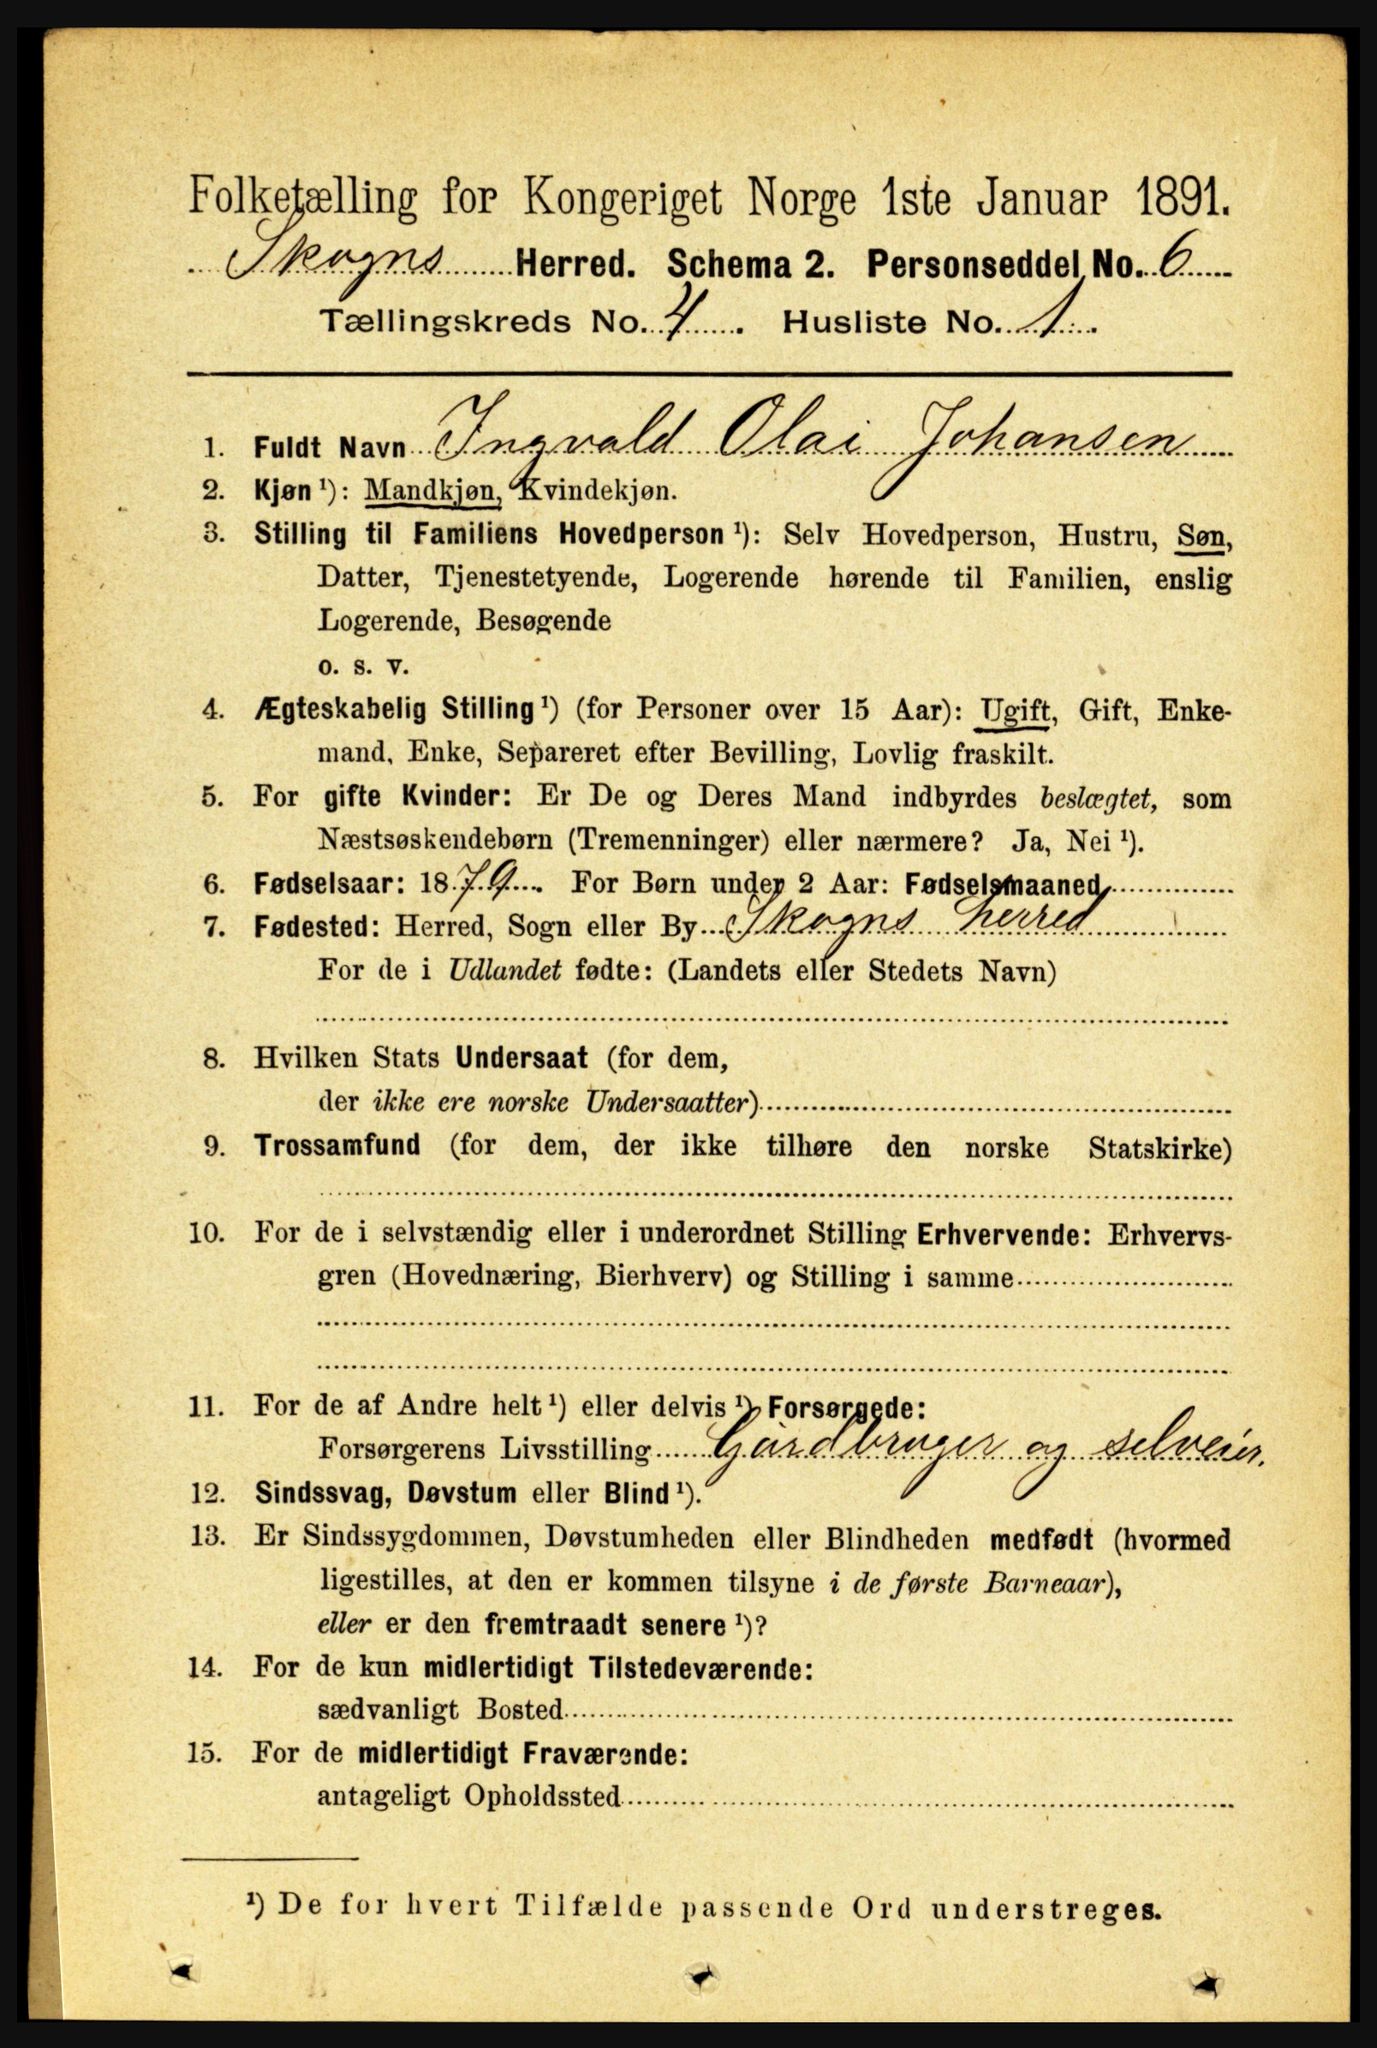 Folketælling for Kongeriget Norge 1ste Januar 1891.
Skogns Herred. Schema 2. Personseddel No. 6
Tællingskreds No. 4. Husliste No. 1.
1. Fuldt Navn Ingvald Olai Johansen
2. Kjøn ¹): Mandkjøn, Kvindekjøn.
3. Stilling til Familiens Hovedperson ¹): Selv Hovedperson, Hustru, Søn,
Datter, Tjenestetyende, Logerende hørende til Familien, enslig
Logerende, Besøgende
o. s. v.
4. Ægteskabelig Stilling ¹) (for Personer over 15 Aar): Ugift, Gift, Enke-
mand, Enke, Separeret efter Bevilling, Lovlig fraskilt.
5. For gifte Kvinder: Er De og Deres Mand indbyrdes beslægtet, som
Næstsøskendebørn (Tremenninger) eller nærmere? Ja, Nei ¹).
6. Fødselsaar: 1879. For Børn under 2 Aar: Fødselsmaaned
7. Fødested: Herred, Sogn eller By Skogns herred
For de i Udlandet fødte: (Landets eller Stedets Navn)
8. Hvilken Stats Undersaat (for dem,
der ikke ere norske Undersaatter)
9. Trossamfund (for dem, der ikke tilhøre den norske Statskirke)
10. For de i selvstændig eller i underordnet Stilling Erhvervende: Erhvervs-
gren (Hovednæring, Bierhverv) og Stilling i samme
11. For de af Andre helt ¹) eller delvis ¹) Forsørgede:
Forsørgerens Livsstilling Gårdbruger og selveier.
12. Sindssvag, Døvstum eller Blind ¹).
13. Er Sindssygdommen, Døvstumheden eller Blindheden medfødt (hvormed
ligestilles, at den er kommen tilsyne i de første Barneaar),
eller er den fremtraadt senere ¹)?
14. For de kun midlertidigt Tilstedeværende:
sædvanligt Bosted
15. For de midlertidigt Fraværende:
antageligt Opholdssted
¹) De for hvert Tilfælde passende Ord understreges.